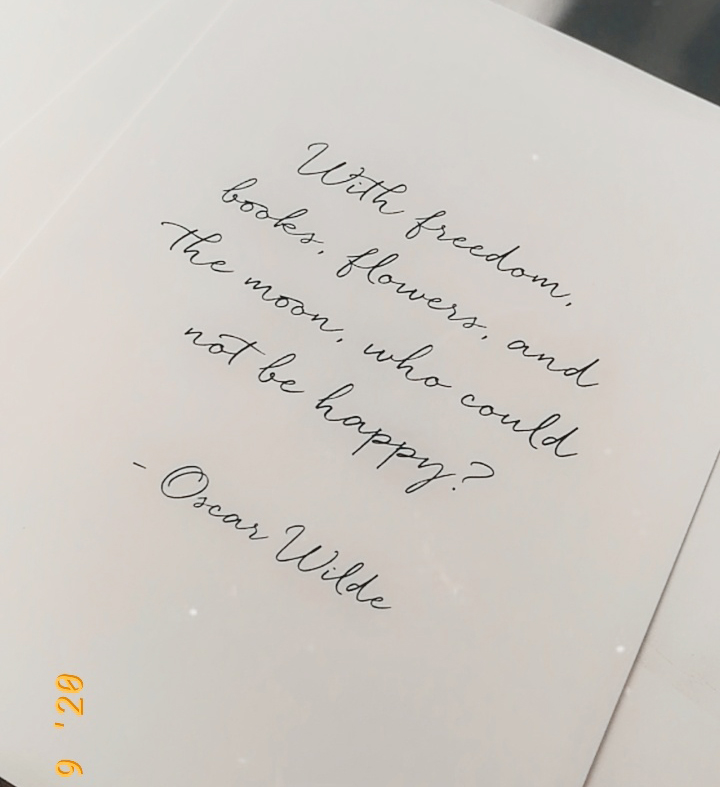 With freedom,
books, flowers, and
the moon, who could
not be happy?
- Oscar Wilde
9 '20